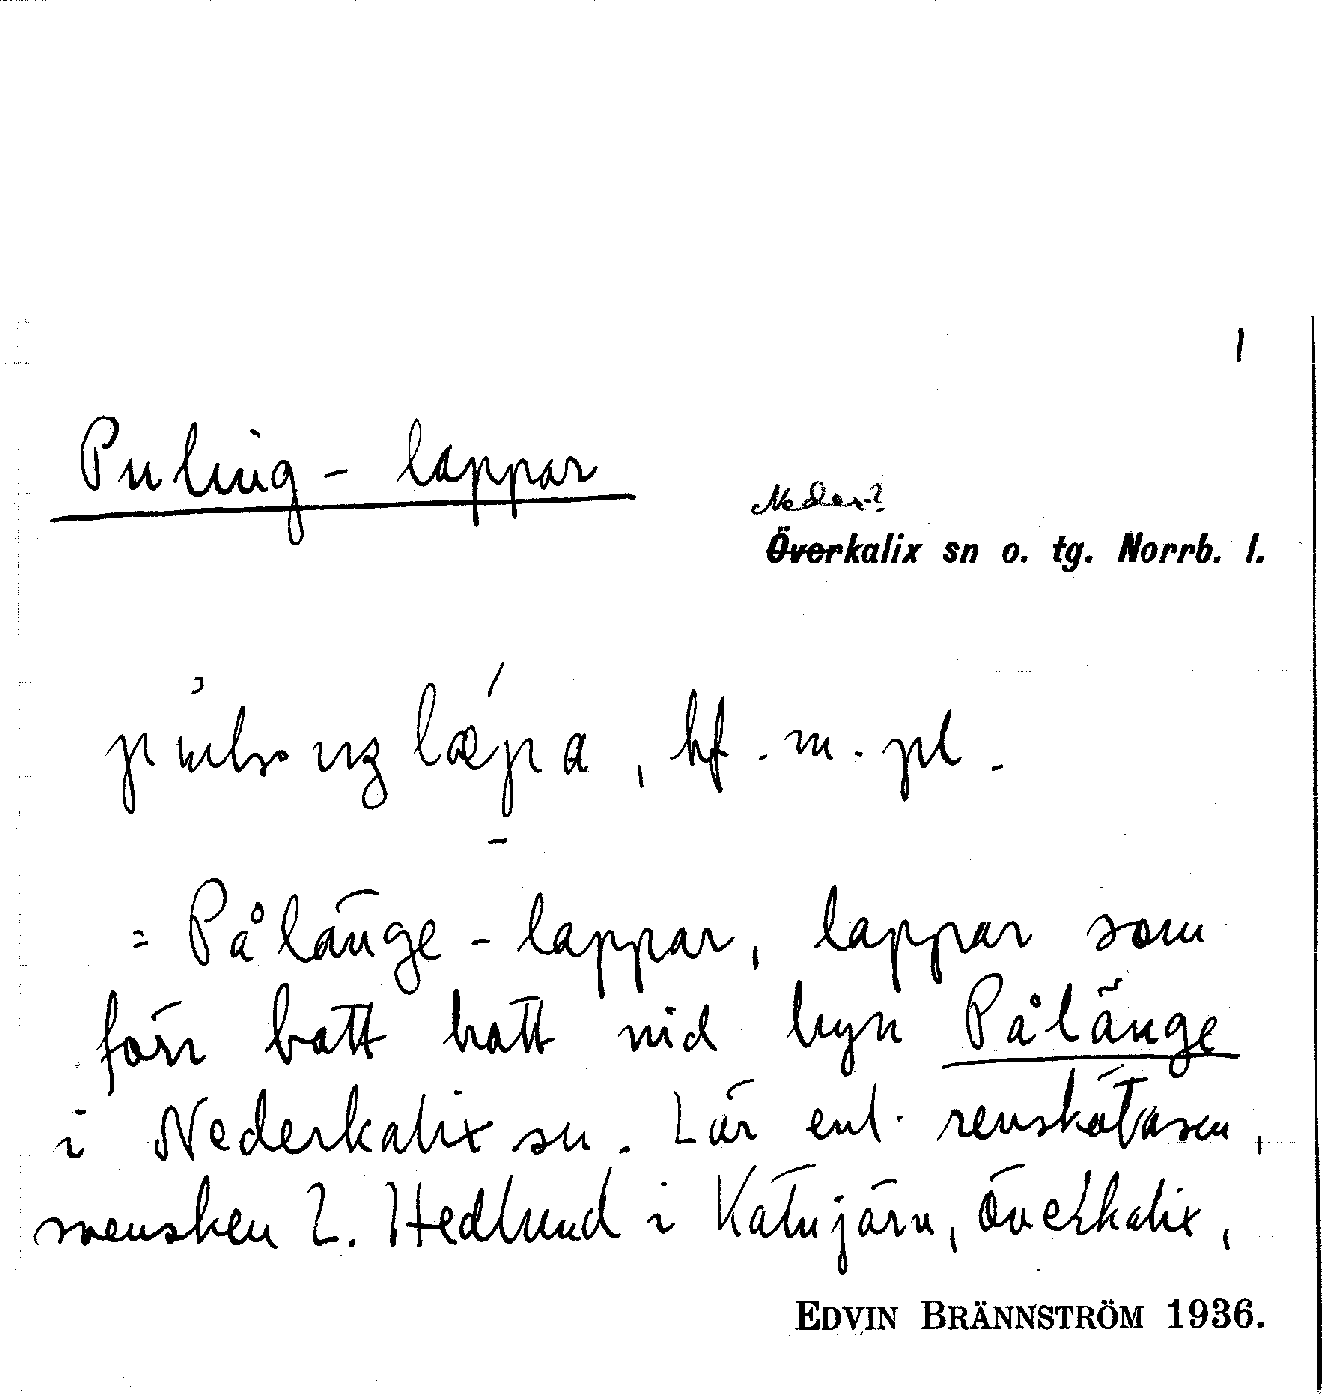 1
Puling - lappar
Neder?
Överkalix sn o. tg. Norrb. l.
, bf. m. pl.
= Pålänge - lappar, lappar som
förr bott hatt vid byn Pålänge
i Nederkalix sn. Lär enl. renskötaren,
svensken L. Hedlund i Kätujärv, Överkalix,
EDVIN BRÄNNSTRÖM 1936.